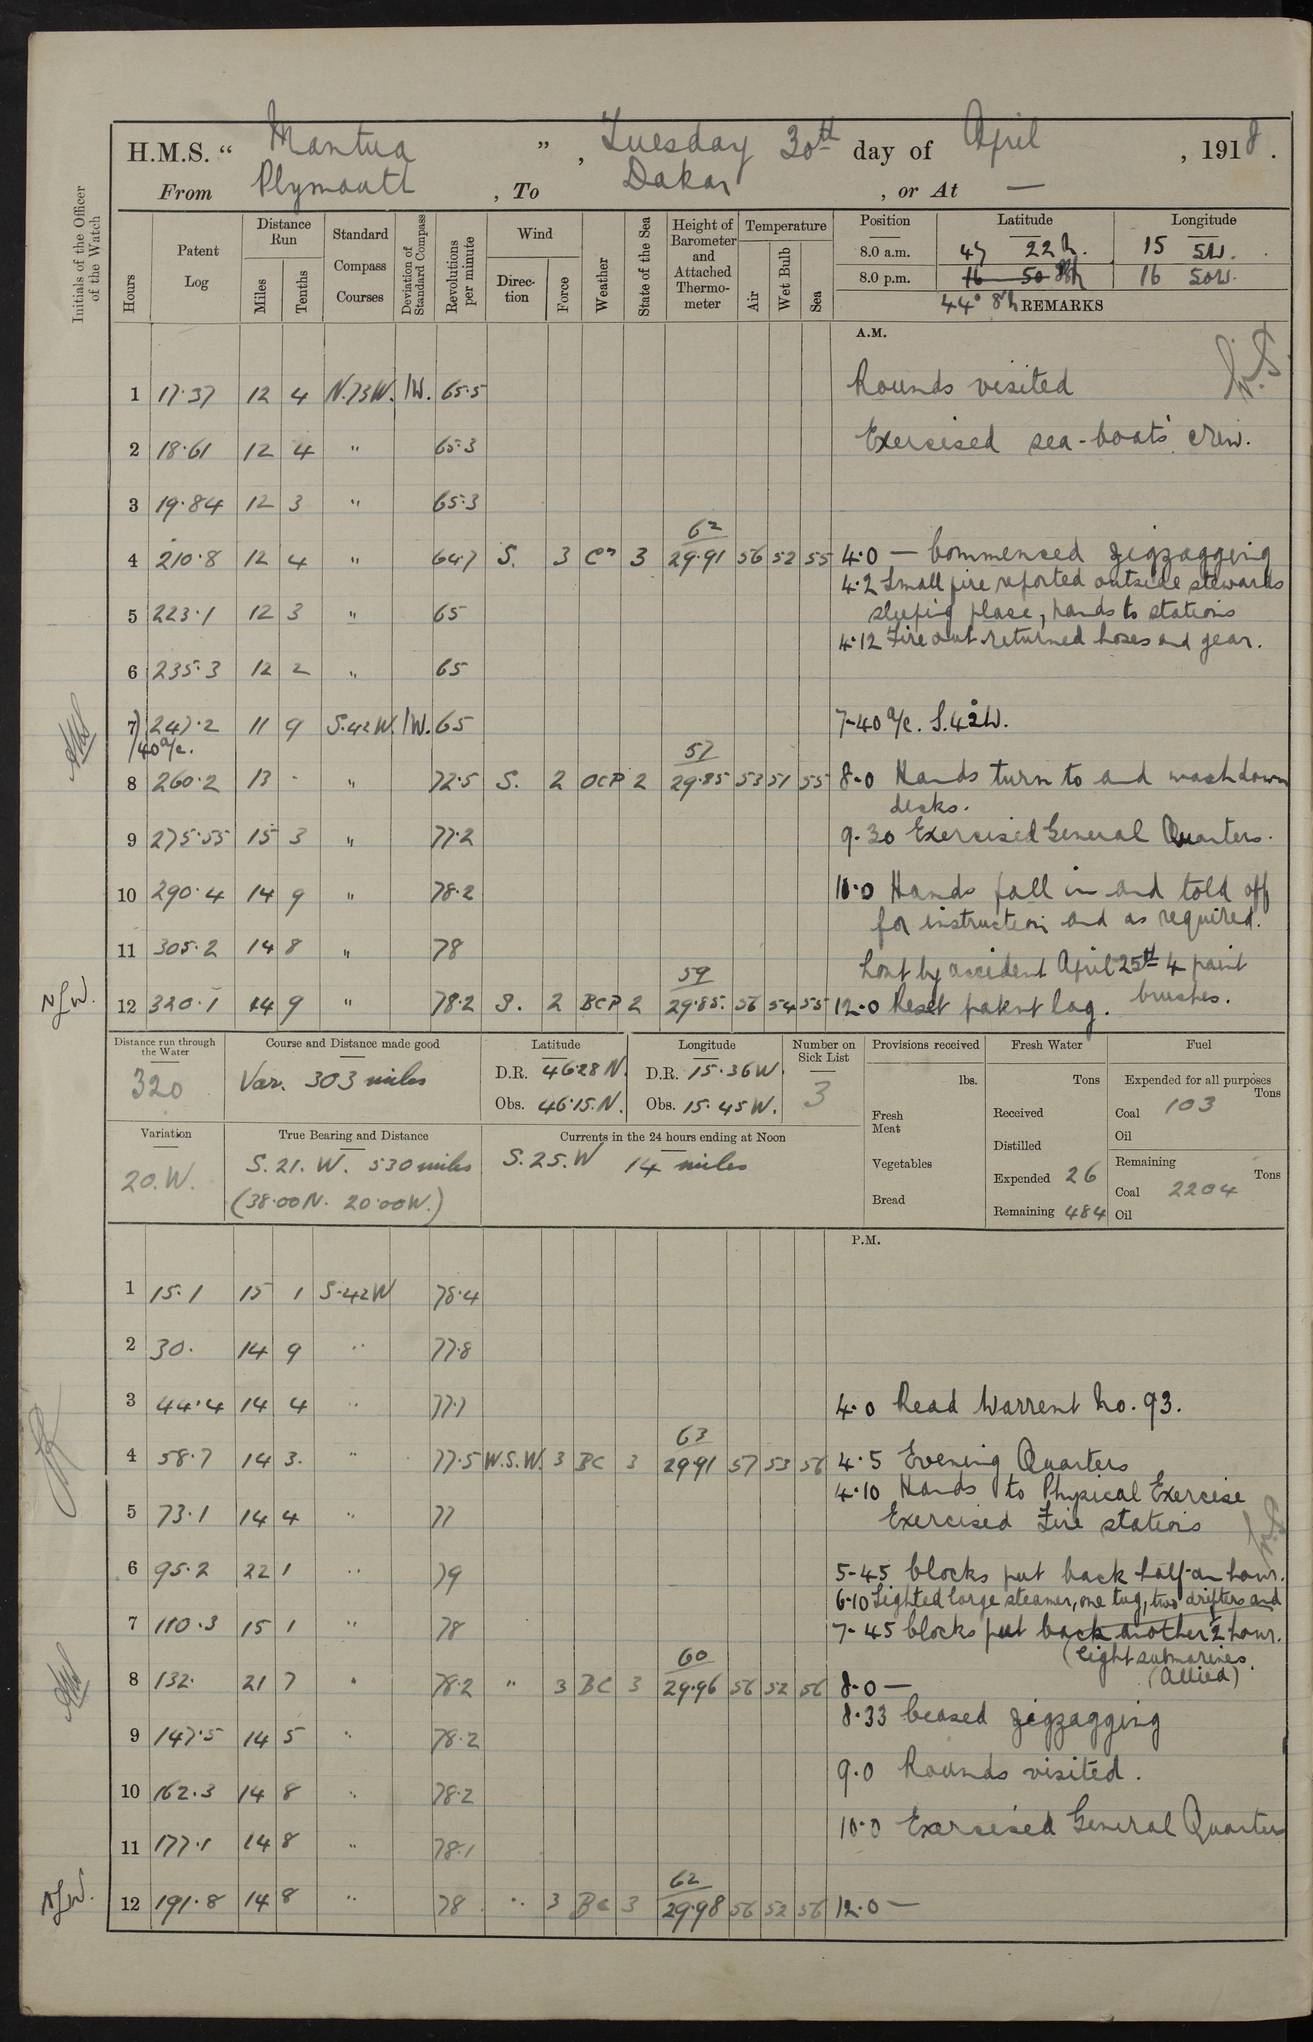 H.M.S. “ Mantua ” , Tuesday 30th day of April , 1918 .
From Plymouth , To Dakar , or At —
Initials of the Officer of the Watch
Hours Patent Log Distance Run Miles Tenths Standard Compass Courses Deviation of Standard Compass Revolutions per minute Wind Direction Force Weather State of the Sea Height of Barometer and Attached Thermometer Temperature Air Wet Bulb Sea
Position Latitude Longitude
8.0 a.m. 47 22 N. 15 5W.
8.0 p.m. 16 50 16 50W.
44° 8'N REMARKS
A.M.
1 17·37 12 4 N.73W. 1W. 65·5 Rounds visited
2 18·61 12 4 " 65·3 Exercised sea-boats' crew.
3 19·84 12 3 " 65·3
62
4 210·8 12 4 " 64·7 S. 3 3 29·91 56 52 55 4·0 — Commenced zigzagging
4·2 Small fire reported outside stewards
5 223·1 12 3 " 65 sleeping place, hands to stations
4·12 Fire out returned hoses and gear.
6 235·3 12 2 " 65
7 247·2 11 9 S.42W. 1W. 65 7-40 a/c. S.42W.
/40 a/c.
57
8 260·2 13 - " 72·5 S. 2 OCP 2 29·85 53 51 55 8-0 Hands turn to and wash down
decks.
9 275·55 15 3 " 77·2 9-30 Exercised General Quarters.
10 290·4 14 9 " 78·2 10·0 Hands fall in and told off
for instruction and as required.
11 305·2 14 8 " 78
Lost by accident April 25th 4 paint
59
brushes.
N.J.W. 12 320·1 14 9 " 78·2 S. 2 BCP 2 29·85. 56 54 55 12·0 Reset patent log.
Distance run through the Water Course and Distance made good Latitude Longitude Number on Sick List Provisions received Fresh Water Fuel
320 Var. 303 miles D.R. 46·28 N. D.R. 15·36 W. 3 lbs. Tons Expended for all purposes Tons
Obs. 46·15.N. Obs. 15·45 W. Fresh Meat Received Coal 103
Oil
Variation True Bearing and Distance Currents in the 24 hours ending at Noon Distilled
20.W. S.21.W. 530 miles S.25.W 14 miles Vegetables Expended 26 Remaining Tons
(38·00N. 20·00W.) Bread Remaining 484 Coal 2204
Oil
P.M.
1 15·1 15 1 S·42W 78·4
2 30· 14 9 " 77·8
3 44·4 14 4 " 77·7 4·0 Read Warrent No. 93.
63
4 58·7 14 3· " 77·5 W.S.W. 3 BC 3 29·91 57 53 56 4·5 Evening Quarters
4·10 Hands to Physical Exercise
5 73·1 14 4 " 77 Exercised Fire stations
6 95·2 22 1 " 79 5-45 Clocks put back half-an hour.
6·10 Sighted large steamer, one tug, two drifters and
7 110·3 15 1 " 78 7-45 Clocks put back another ½ hour.
(eight submarines.
(Allied)
60
8 132· 21 7 " 78·2 " 3 BC 3 29·96 56 52 56 8·0 —
8·33 Ceased zigzagging
9 147·5 14 5 " 78·2
9·0 Rounds visited.
10 162·3 14 8 " 78·2
10·0 Exercised General Quarters
11 177·1 14 8 " 78·1
62
N.J.W. 12 191·8 14 8 " 78 " 3 BC 3 29·98 56 52 56 12·0 —